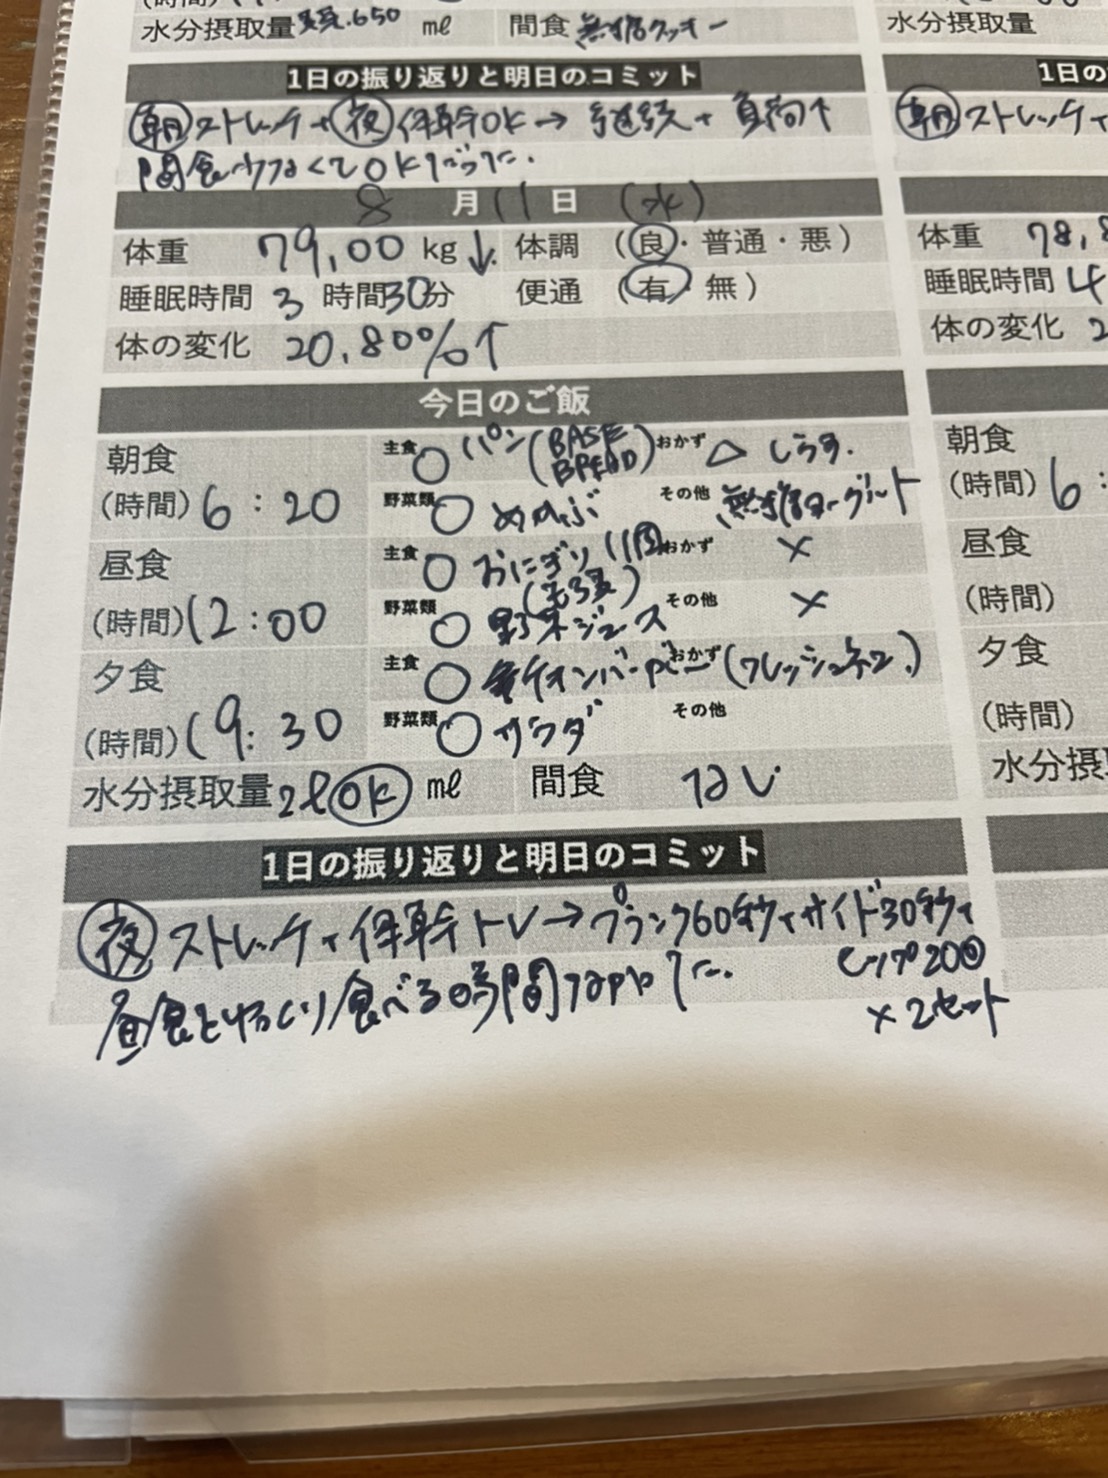 水分摂取量 650 ml 間食 無糖クッキー
水分摂取量
1日の振り返りと明日のコミット
1日の
朝 ストレッチ+夜 体幹OK→ 継続+ 負荷↑
朝 ストレッチ+
間食少なくてOKだった.
8月11日 (水)
体重 79,00 kg↓. 体調 (良・普通・悪)
体重 78,8
睡眠時間 3時間30分 便通 (有・無)
睡眠時間 4
体の変化 20,80%↑
体の変化 2
今日のご飯
朝食 主食 ○ パン(BASE BREAD) おかず △ しらす.
朝食
(時間) 6:20 野菜類 ○ めかぶ その他 無糖ヨーグルト
(時間) 6:
昼食 主食 ○ おにぎり 1個 おかず ×
昼食
(時間) 12:00 野菜類 ○ 野菜ジュース その他 ×
(時間)
夕食 主食 ○ おかず (フレッシュネス.)
夕食
(時間) 19:30 野菜類 ○ サラダ その他
(時間)
水分摂取量 2ℓ OK ml 間食 なし
水分摂
1日の振り返りと明日のコミット
夜 ストレッチ+体幹トレ→プランク60秒+サイド30秒+
ヒップ20回
昼食をゆっくり食べる時間なかった.
×2セット